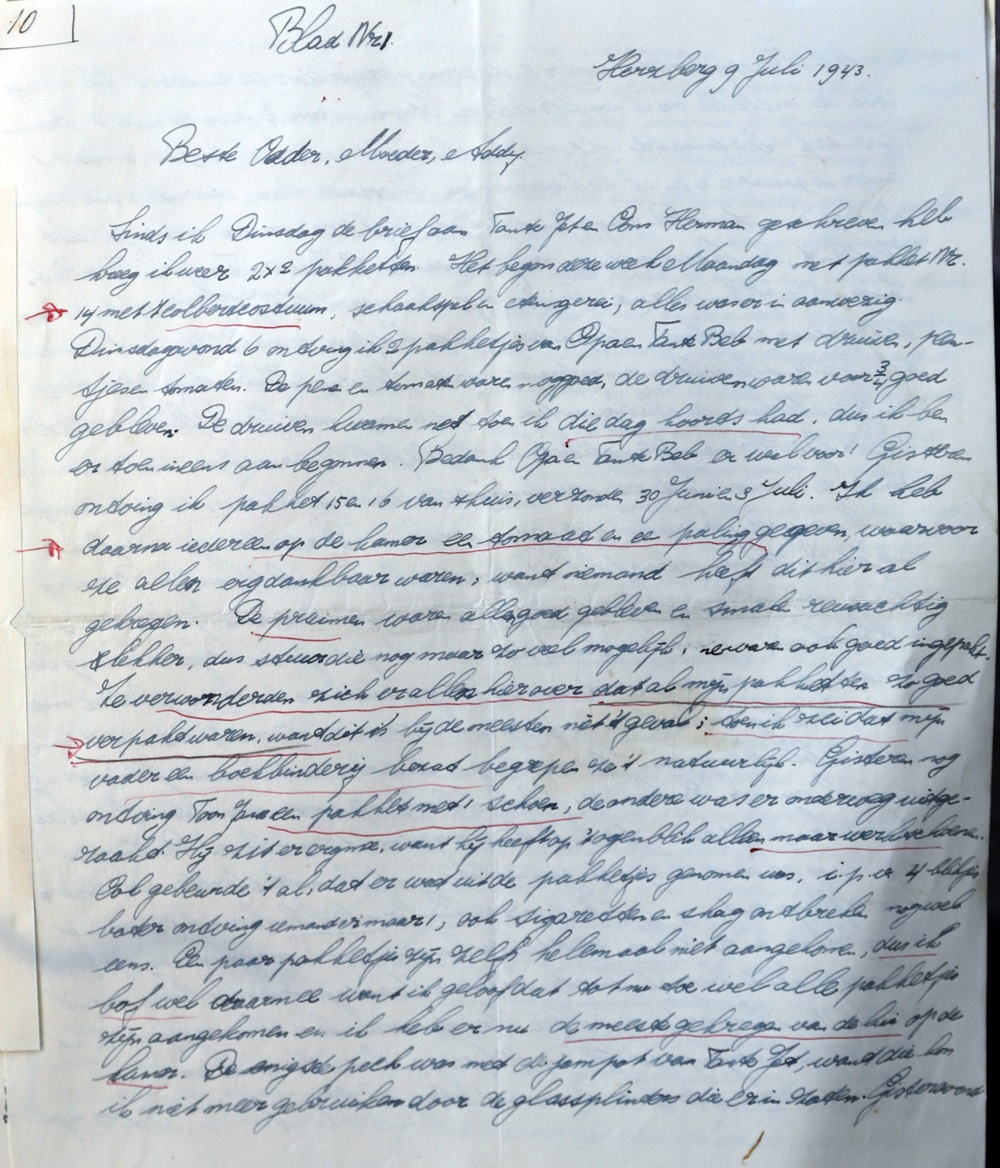 10
Blad Nr1.
Herzberg 9 Juli 1943.
Beste Vader, Moeder, Addy.
Sinds ik Dinsdag de brief aan Tante Jet en Oom Herman geschreven heb
kreeg ik weer 2x2 pakketten. Het begon deze week Maandag met pakket Nr.
14 met 't colbertcostuum, schaakspel en etensgerei, alles was er in aanwezig.
Dinsdagavond 6 ontving ik 2 pakketjes van Opa en Tante Beb met druiven, peer-
tjes en tomaten. De peer en tomaat waren nog goed, de druiven waren voor 3/4 goed
gebleven. De druiven kwamen net toen ik die dag koorts had, dus ik ben
er toen ineens aan begonnen. Bedank Opa en Tante Beb er wel voor! Gisteren
ontving ik pakket 15 en 16 van thuis, verzonden 30 Juni en 3 Juli. Ik heb
daarna iedereen op de kamer een tomaat en een paling gegeven, waarvoor
ze allen erg dankbaar waren, want niemand heeft dit hier al
gekregen. De pruimen waren alle goed gebleven en smaken reusachtig
lekker, dus stuur die nog maar zo veel mogelijk, ze waren ook goed ingepakt.
Ze verwonderden zich er allen hier over dat al mijn pakketten zo goed
verpakt waren, want dit is bij de meesten niet 't geval; toen ik zei dat mijn
vader een boekbinderij bezat begrepen ze 't natuurlijk. Gisteren nog
ontving Toon een pakket met 1 schoen, de andere was er onderweg uitge-
raakt. Hij zit er erg mee, want hij heeft op 't ogenblik alleen maar werkschoenen.
Ook gebeurde 't al, dat er wat uit de pakketjes genomen was, i.p.v. 4 blikjes
boter ontving iemand er maar 1, ook sigaretten en shag ontbreken nog wel
eens. Een paar pakketjes zijn zelfs helemaal niet aangekomen, dus ik
bof wel daarmee want ik geloof dat tot nu toe wel alle pakketjes
zijn aangekomen en ik heb er nu de meeste gekregen van de lui op de
kamer. De enigste pech was met de jampot van Tante Jet, want die kon
ik niet meer gebruiken door de glassplinters die er in zaten. Gisteravond